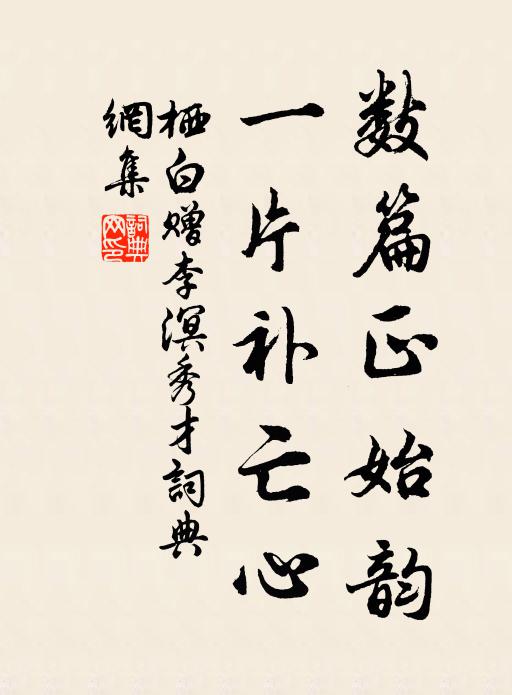 数篇正始韵
一片补亡心
栖白赠李溟秀才詞典
網集
詞典網印